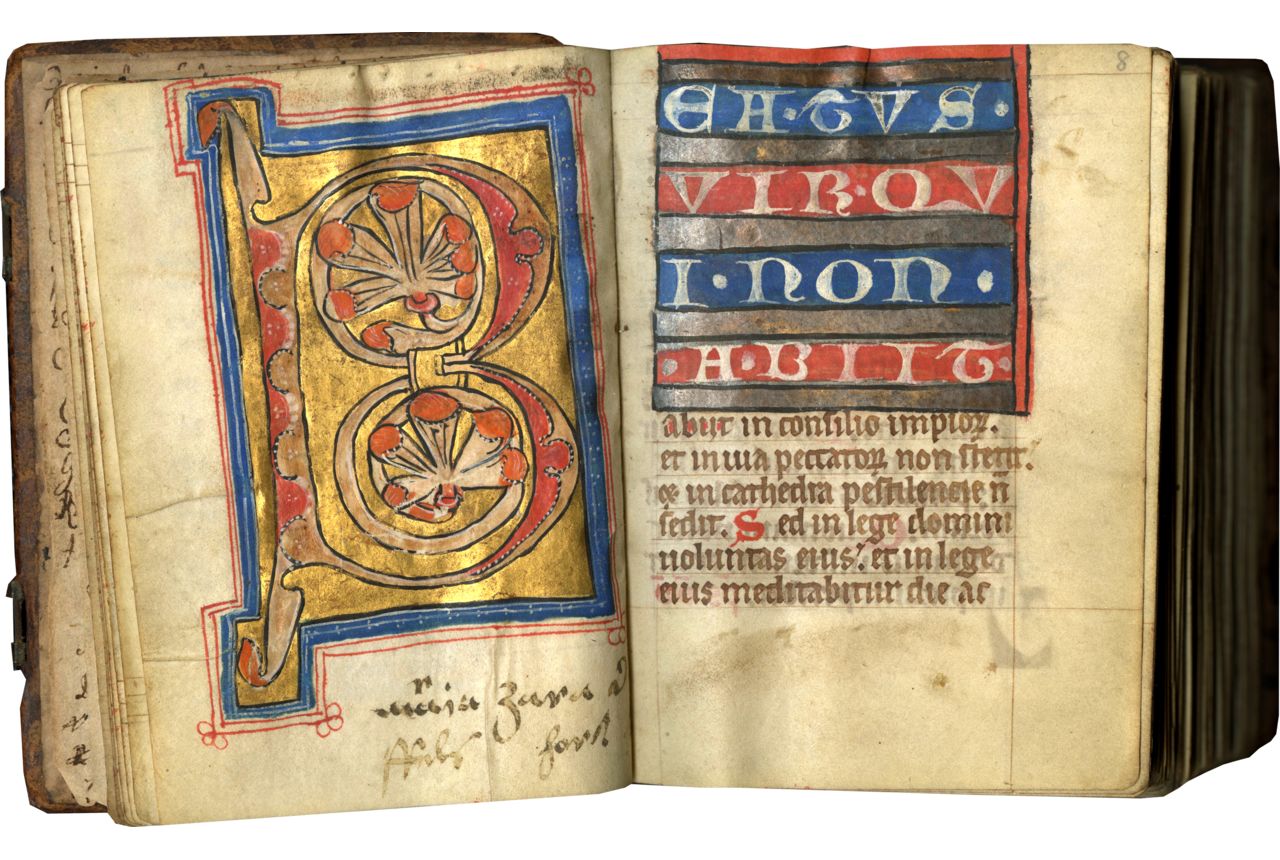 B
maria zara
8
EA·TVS·
VIR·QV
I·NON·
·ABIIT·
abiit in consilio impioꝝ.
et in uia peccatoꝝ non stetit.
⁊ in cathedra pestilencie n̄
sedit. Sed in lege domini
uoluntas eius. et in lege
eius meditabitur die ac